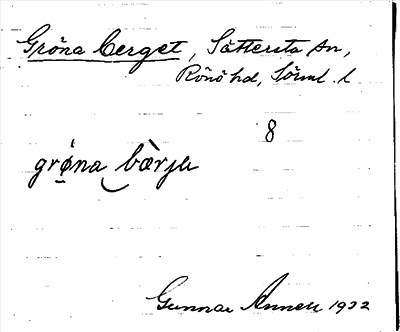 Gröna berget, Sättersta sn,
Rönö hd, Sörml. l
8
grø̀na bærjet
Gunnar Annell 1932